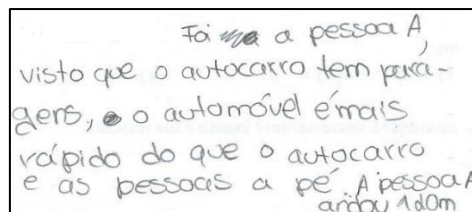 Foi a pessoa A,
visto que o autocarro tem pará-
gens, o automóvel é mais
rápido do que o autocarro
e as pessoas a pé. A pessoa A
andou 120m